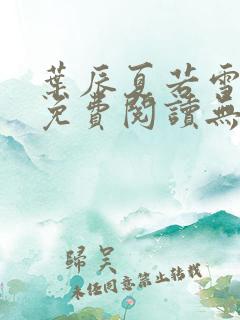 葉辰夏若雪
免費閱讀無
歸吳
未經同意禁止轉載